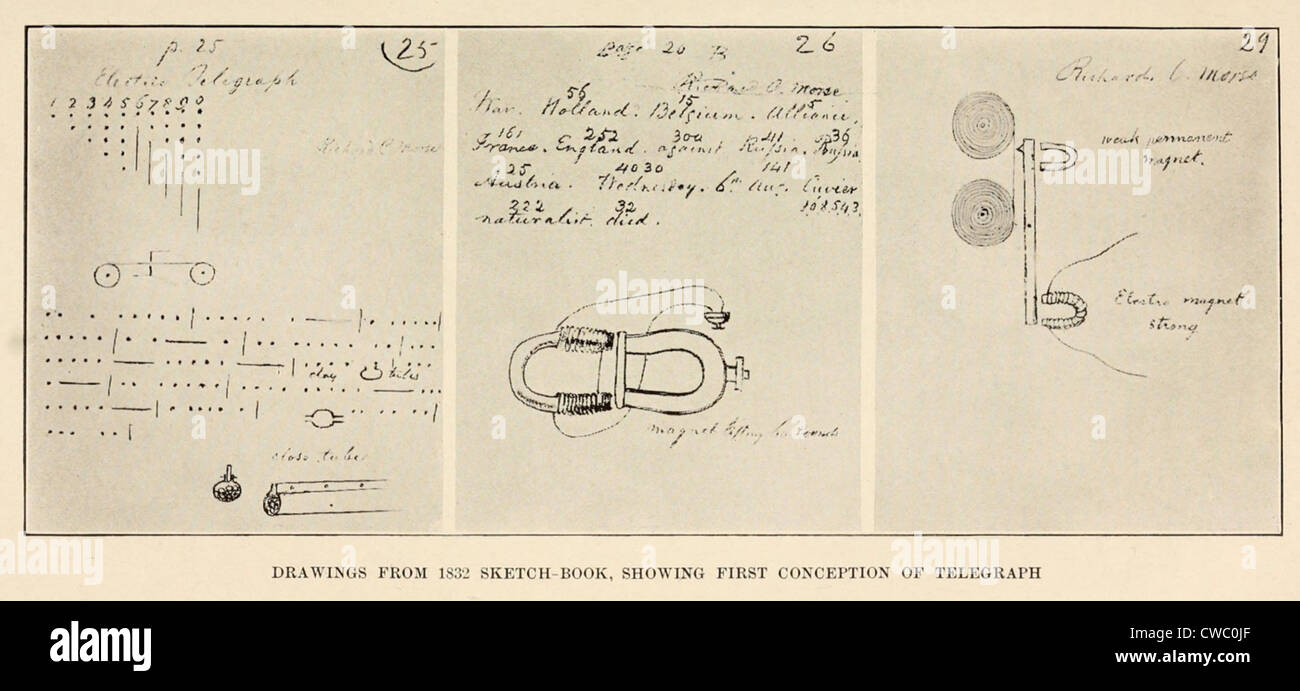 p. 25
25
Electric Telegraph
1 2 3 4 5 6 7 8 9 0
Richard C. Morse
clay tubes
close tubes
Page 20
26
Richard C. Morse
56 15 5
War. Holland. Belgium. Alliance,
161 252 300 41 36
France. England. against Russia. Prussia
25 4030 141
Austria. Wednesday. 6th Aug. Cuvier
222 32 10,8,5,4,3.
naturalist. died.
magnet lifting
29
Richard C. Morse
weak permanent
magnet.
Electro magnet
strong
DRAWINGS FROM 1832 SKETCH-BOOK, SHOWING FIRST CONCEPTION OF TELEGRAPH
alamy
alamy stock photo
Image ID: CWC0JF
www.alamy.com